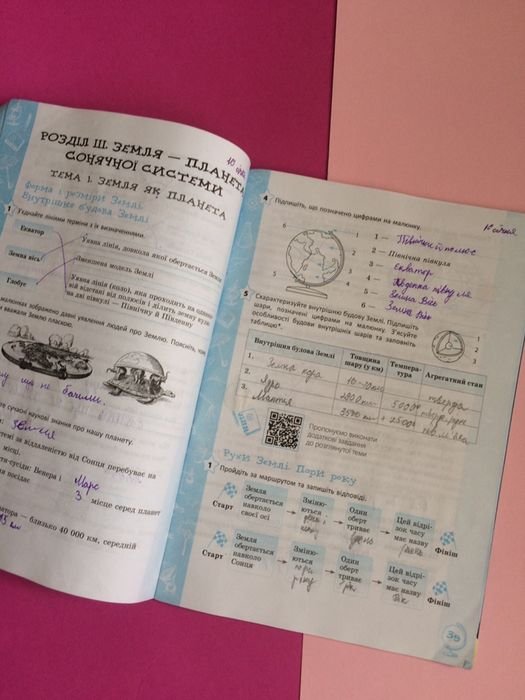 РОЗДІЛ ІІІ. ЗЕМЛЯ — ПЛАНЕТА
СОНЯЧНОЇ СИСТЕМИ
ТЕМА 1. ЗЕМЛЯ ЯК ПЛАНЕТА
Форма і розміри Землі.
Внутрішня будова Землі
1 З'єднайте лініями терміни з їх визначеннями.
Екватор
Уявна лінія, довкола якої обертається Земля
Земна вісь
Зменшена модель Землі
Глобус
Уявна лінія (коло), яка проходить на однако-
вій відстані від полюсів і ділить земну кулю
на дві півкулі — Північну й Південну
малюнках зображено давні уявлення людей про Землю. Поясніть, чому
вважали Землю пласкою.
що не бачили.
сучасні наукові знання про нашу планету.
за віддаленістю від Сонця перебуває на
місці.
сусіди: Венера і Марс
посідає 3 місце серед планет
атора — близько 40 000 км, середній
4 Підпишіть, що позначено цифрами на малюнку.
6
1
2
3
4
5
1 —
2 — Північна півкуля
3 — Екватор
4 —
5 — Земна Вісь
6 —
5 Схарактеризуйте внутрішню будову Землі. Підпишіть
шари, позначені цифрами на малюнку. З'ясуйте
особливості будови внутрішніх шарів та заповніть
таблицю*.
1
2
3
Внутрішня будова Землі Товщина шару (у км) Темпера-тура Агрегатний стан
1. Земна кора тверда
2. Ядро 5000
3. Мантія
Пропонуємо виконати
додаткові завдання
до розглянутої теми
Рухи Землі. Пори року
1 Пройдіть за маршрутом та запишіть відповіді.
Старт
Земля
обертається
навколо
своєї осі
Зміню-
ються
день і
ніч
Один
оберт
триває
день
Цей відрі-
зок часу
має назву
Фініш
Старт
Земля
обертається
навколо
Сонця
Зміню-
ються
пори
року
Один
оберт
триває
рік
Цей відрі-
зок часу
має назву
рік
Фініш
39